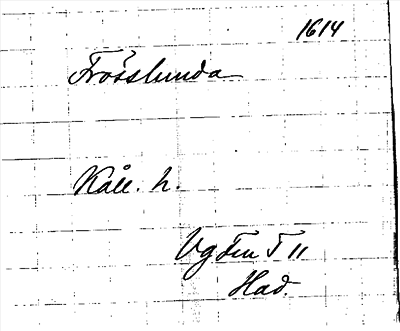 1614
Frösslunda
Kåll. h.
Vg Fen T 11
Had.